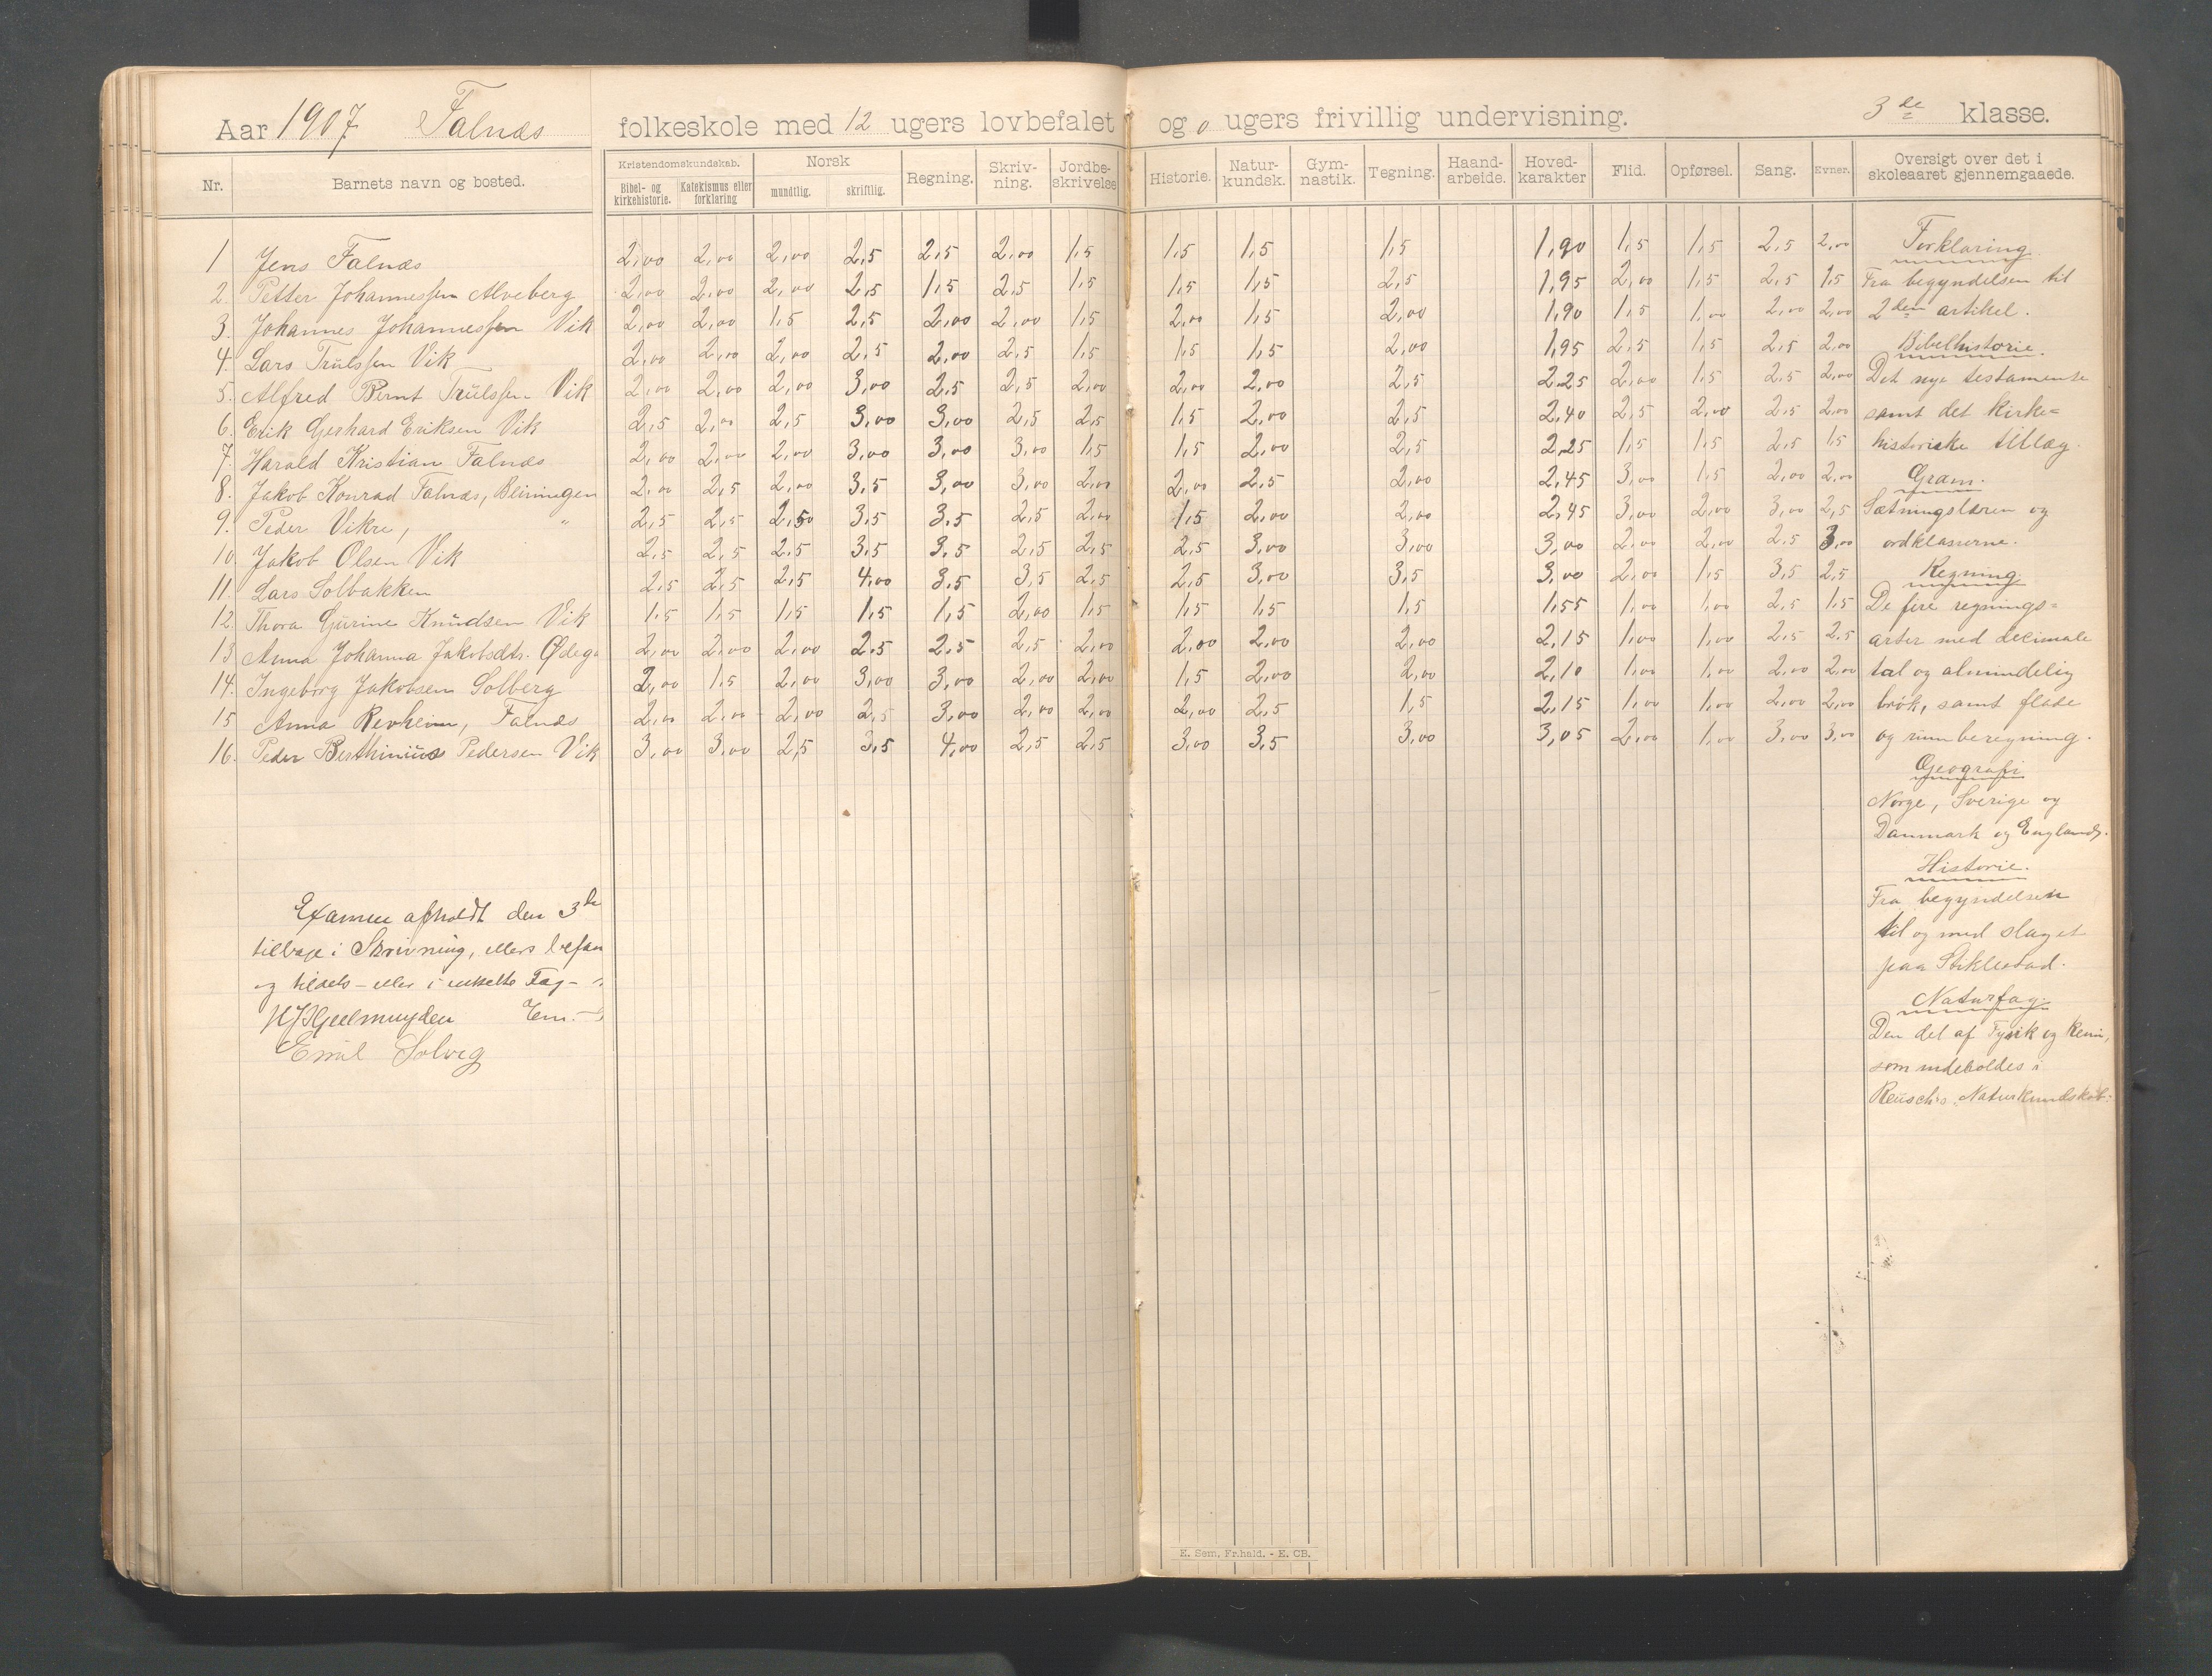 Aar 1907 Falnæs folkeskole med 12 ugers lovbefalet og 0 ugers frivillig undervisning. 3de klasse.
Nr. Barnets navn og bosted. Kristendomskundskab. Bibel- og kirkehistorie. Katekismus eller forklaring Norsk mundtlig. skriftlig. Regning. Skriv-ning. Jordbe-skrivelse Historie. Natur-kundsk. Gym-nastik. Tegning. Haand-arbeide. Hoved-karakter Flid. Opførsel. Sang. Evner. Oversigt over det i skoleaaret gjennemgaaede.
1 Jens Falnæs 2,00 2,00 2,00 2,5 2,5 2,00 1,5 1,5 1,5 1,5 1,90 1,5 1,5 2,5 2,00
2. Petter Johannessen Alveberg 2,00 2,00 2,00 2,5 1,5 2,5 1,5 1,5 1,5 2,5 1,95 2,00 1,5 2,5 1,5
3. Johannes Johannessen Vik 2,00 2,00 1,5 2,5 2,00 2,00 1,5 2,00 1,5 2,00 1,90 1,5 1,00 2,00 2,00
4. Lars Trulssen Vik 2,00 2,00 2,00 2,5 2,00 2,5 1,5 1,5 1,5 2,00 1,95 2,5 1,5 2,5 2,00
5. Alfred Bernt Trulssen Vik 2,00 2,00 2,00 3,00 2,5 2,5 2,00 2,00 2,00 2,5 2,25 2,00 1,5 2,5 2,00
6. Erik Gerhard Eriksen Vik 2,5 2,00 2,5 3,00 3,00 2,5 2,5 1,5 2,00 2,5 2,40 2,5 2,00 2,5 2,00
7. Harald Kristian Falnæs 2,00 2,00 2,00 3,00 3,00 3,00 1,5 1,5 2,00 2,5 2,25 1,5 1,5 2,5 1,5
8. Jakob Konrad Falnæs, 2,00 2,5 2,00 3,5 3,00 3,00 2,00 2,00 2,5 2,00 2,45 3,00 1,5 2,00 2,00
9. Peder Vikre, " 2,5 2,5 2,50 3,5 3,5 2,5 2,00 1,5 2,00 2,00 2,45 3,00 2,00 3,00 2,5
10. Jakob Olsen Vik 2,5 2,5 2,5 3,5 3,5 2,5 2,5 2,5 3,00 3,00 3,00 2,00 2,00 2,5 3,00
11. Lars Solbakken 2,5 2,5 2,5 4,00 3,5 3,5 2,5 2,5 3,00 3,5 3,00 2,00 1,5 3,5 2,5
12. Thora Gurine Knudsen Vik 1,5 1,5 1,5 1,5 1,5 2,00 1,5 1,5 1,5 1,5 1,55 1,00 1,00 2,5 1,5
13 Anna Johanna Jakobsdtr. Ødeg 2,00 2,00 2,00 2,5 2,5 2,5 2,00 2,00 2,00 2,00 2,15 1,00 1,00 2,5 2,5
14. Ingeborg Jakobsen Solberg 2,00 1,5 2,00 3,00 3,00 2,00 2,00 1,5 2,00 2,00 2,10 1,00 1,00 2,00 2,00
15 Anna Revheim, Falnæs 2,00 2,00 2,00 2,5 3,00 2,00 2,00 2,00 2,5 1,5 2,15 1,00 1,00 2,00 2,00
16. Peder Berthinius Pedersen Vik 3,00 3,00 2,5 3,5 4,00 2,5 2,5 3,00 3,5 3,00 3,05 2,00 1,00 3,00 3,00
Forklaring.
Fra begyndelsen til
2den artikel.
Bibelhistorie.
Det nye testamente
samt det kirke=
historiske tillæg.
Gram.
Sætningslæren og
ordklasserne.
Regning.
De fire regnings=
arter med decimale
tal og almindelig
brøk, samt flade
og rumberegning.
Geografi
Norge, Sverige og
Danmark og England.
Historie.
Fra begyndelsen
til og med slaget
paa Stiklestad.
Naturfag.
Den del af Fysik og Kemi,
som indeholdes i
Reusch's Naturkundskab.
Examen afholdt den 3de
tilbage i Skrivning, ellers befan
og tildels - eller i enkelte Fag -
HJHjelmuyden Em.
Emil Solveg
E. Sem, Fr.hald. - E. CB.